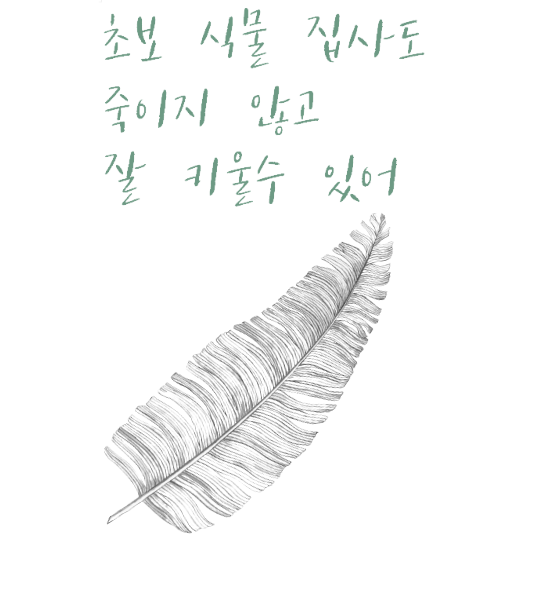 초보 식물 집사도
죽이지 않고
잘 키울수 있어